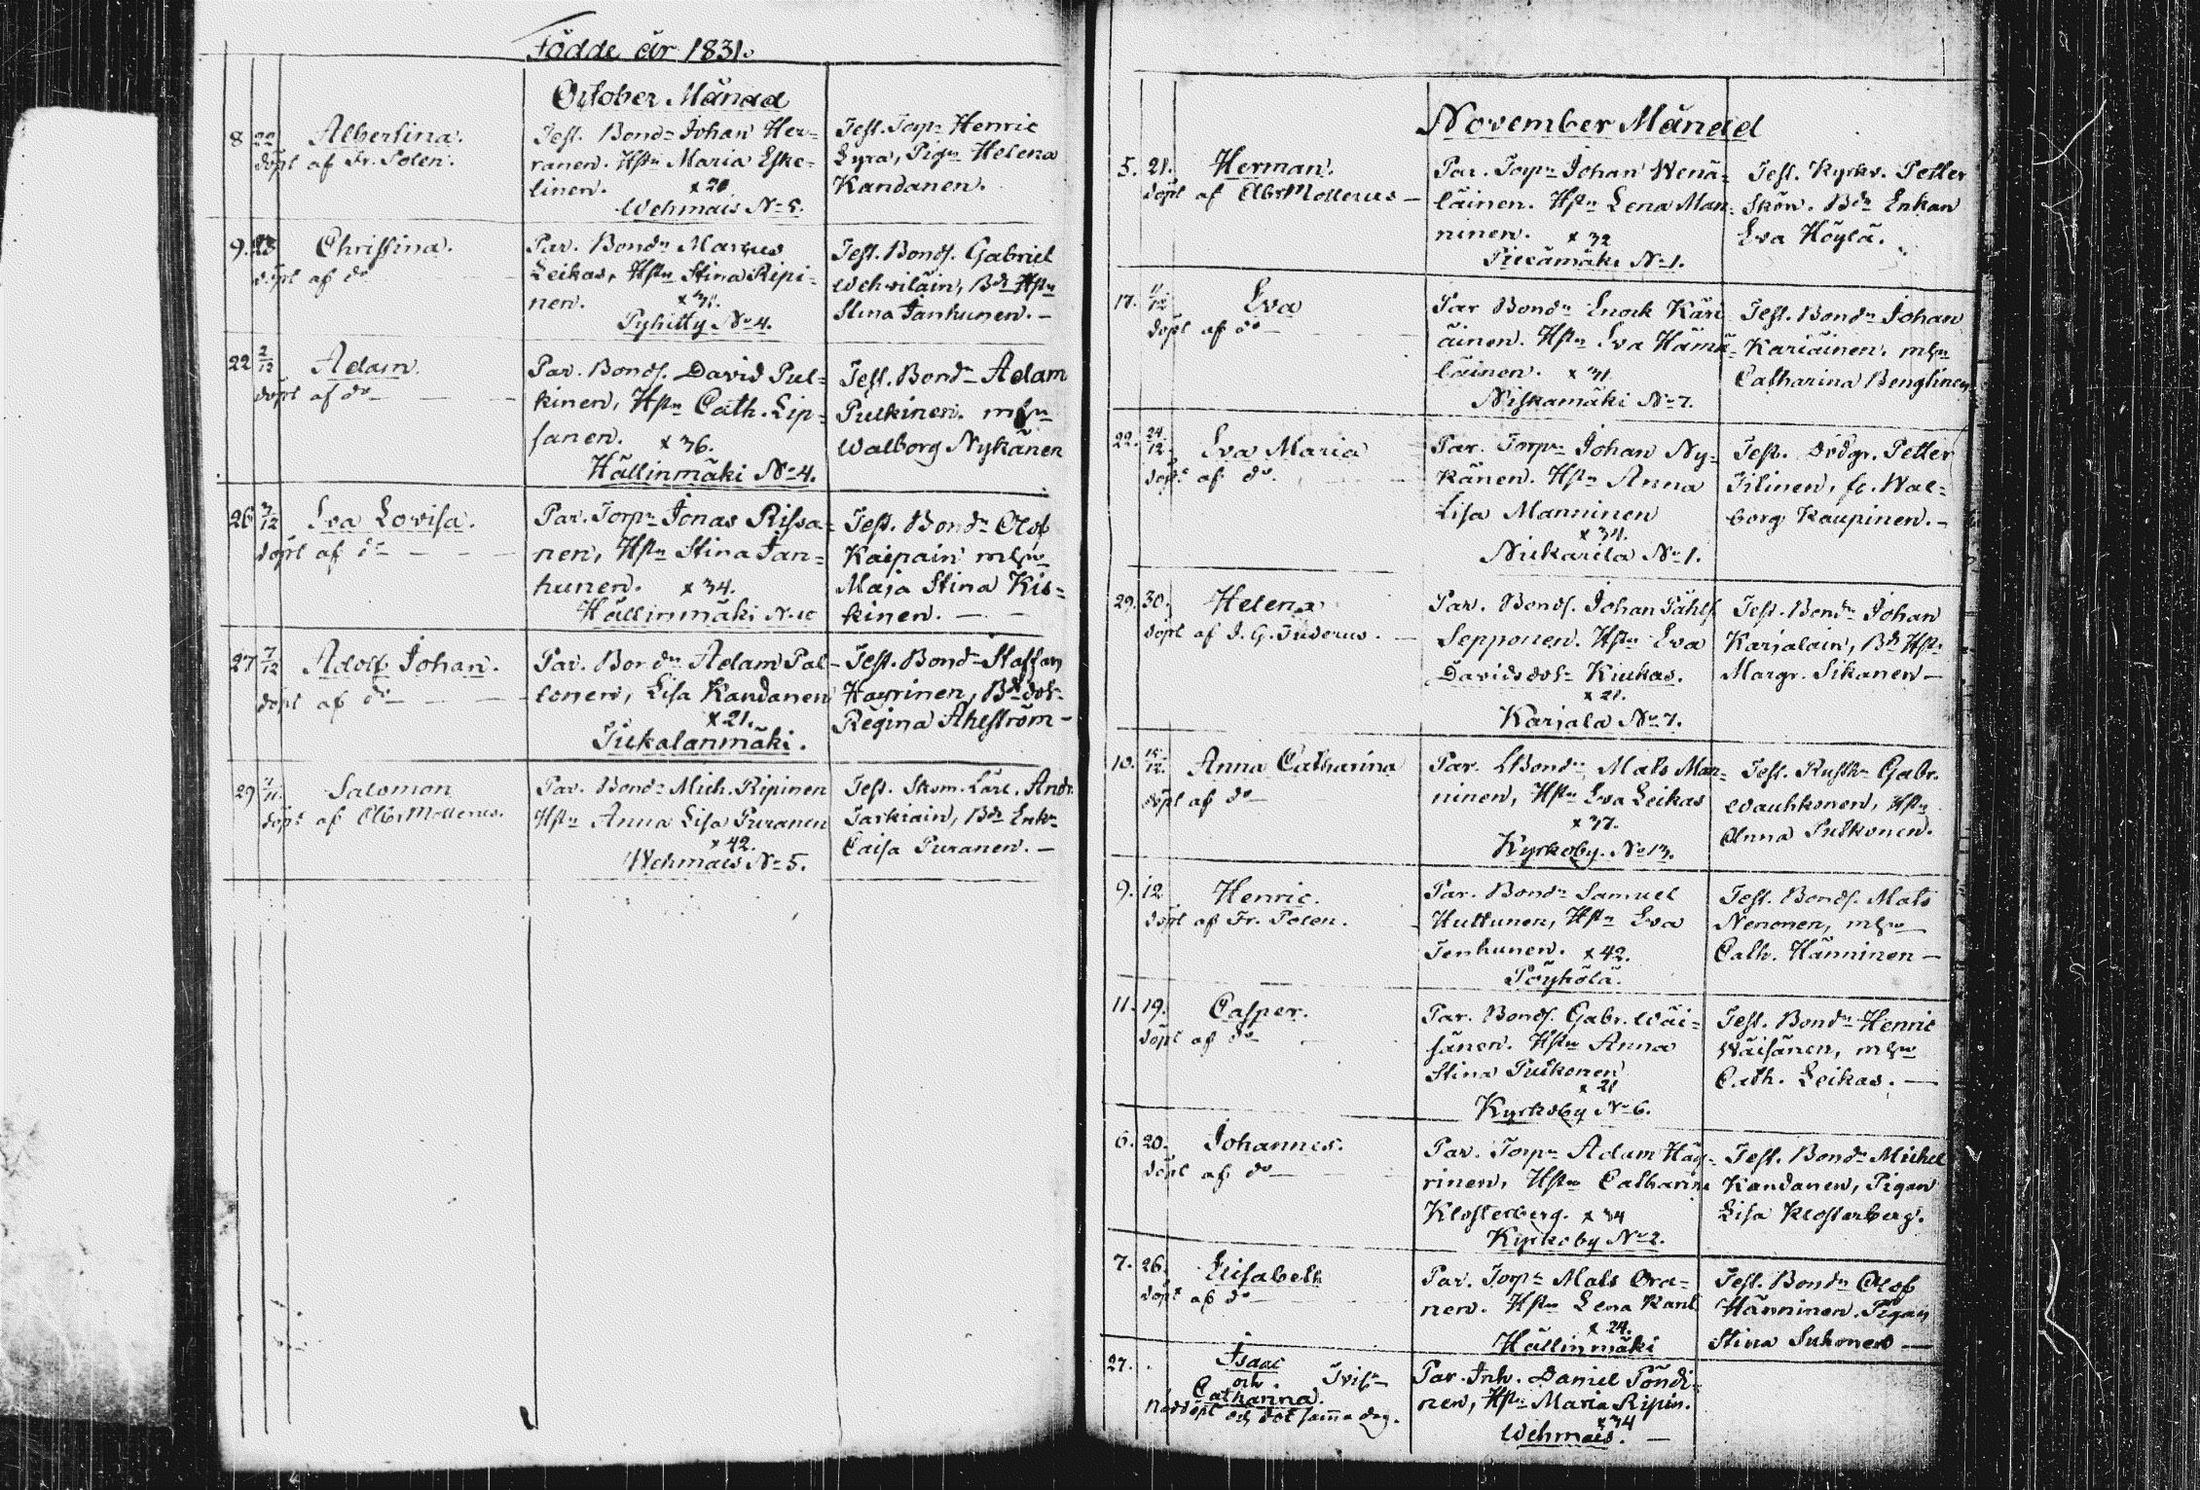 Födde år 1831.
October Månad
8 22 Albertina.
döpt af Fr. Polen.
Test. Bondn Johan Her-
ranen. Hstn Maria Eske-
linen. x 20
Wehmais No 5.
Test. Torpn Henric
Lyra, Pign Helena
Kandanen.
9. 23 Christina.
döpt af do
Par. Bondn Marcus
Leikas, Hstn Stina Ripi-
nen. x 31.
Pyhitty No 4.
Test. Bonds. Gabriel
Wehviläin, Bd Hstn
Stina Janhunen. –
22 2/12 Adam.
döpt af do
Par. Bonds. David Pul-
kinen, Hstn Cath. Lip-
sanen. x 36.
Hällinmäki No 4.
Test. Bondn Adam
Pulkinen. m hu
Walborg Nykänen
26 3/12 Eva Lovisa.
döpt af do
Par. Torpn Jonas Rissa-
nen, Hstn Stina Jan-
hunen. x 34.
Hällinmäki No 10
Test. Bondn Olof
Kaipain m hu
Maja Stina Kis-
kinen. –
27 7/12 Adolf Johan.
döpt af do
Par. Bondn Adam Pal-
lonen, Lisa Kandanen
x 21.
Test. Bondn Staffan
Häyrinen, Bd dotr
Regina Ahlström –
29 7/11. Salomon
döpt af Elbr Mollerus.
Par. Bondn Mich. Ripinen
Hstn Anna Lisa Puranen
x 42.
Wehmais No 5.
Test. Skom. Lärl. Andr.
Tarkiain, Bd Enkn
Caisa Puranen. –
November Månad
5. 21. Herman.
döpt af Elbr Mollerus –
Par. Torpn Johan Wenä-
läinen. Hstn Lena Man-
ninen. x 32
Pieeämäki No 1.
Test. Kyrkv. Petter
Skön. Bdn Enkan
Eva Höylä.
17. 11/12 Eva
döpt af do
Par Bondn Enock Käri
äinen. Hstn Eva Hämä-
läinen. x 31
Niskamäki No 7.
Test. Bondn Johan
Kariäinen. m hu
Catharina Bengtinen
22. 24/12. Eva Maria
döpt af do
Par. Torpn Johan Ny-
känen. Hstn Anna
Lisa Manninen
x 31.
Niskarila No 1.
Test. Drägr. Petter
Tilinen, fr. Wal-
borg Kaupinen. –
29. 30. Helena
döpt af J. G. Tuderus.
Par. Bonds. Johan Påhls
Sepponen. Hstn Eva
Davidsdotr Kiukas.
x 21.
Karjala No 7.
Test. Bondn Johan
Karjalain, Bd Hstn
Margr. Sikanen –
10. 15/12. Anna Catharina
döpt af do
Par. LBondn Mats Man-
ninen, Hstn Eva Leikas
x 37.
Kyrkoby. No 13.
Test. Rusth. Gabr.
Wauhkonen, Hstn
Anna Pulkonen.
9. 12. Henric.
döpt af Fr. Polen.
Par. Bondn Samuel
Huttunen, Hstn Eva
Jenhunen. x 42.
Pöyhölä.
Test. Bonds. Mats
Nenonen, m hu
Cath. Hänninen –
11. 19. Casper.
döpt af do
Par. Bonds. Gabr. Wäi-
sänen. Hstn Anna
Stina Pulkonen
x 21
Kyrkoby No 6.
Test. Bondn Henric
Wäisänen, m hu
Cath. Leikas. –
6. 20. Johannes.
döpt af do
Par. Torpn Adam Häy-
rinen, Hstn Catharina
Klosterberg. x 34
Kyrkoby No 2.
Test. Bondn Michel
Kandanen, Pigan
Lisa Klosterberg.
7. 26. Elisabeth
döpt af do
Par. Torpn Mats Ora-
nen. Hstn Lena Kant
x 24.
Hällinmäki
Test. Bondn Olof
Hänninen. Pigan
Stina Suhonen –
27. Isaac
och
Catharina.
Nöddöpt och död samma dag.
Par. Inh. Daniel Pöndi-
nen, Hstn Maria Ripin.
x 34
Wehmais. –